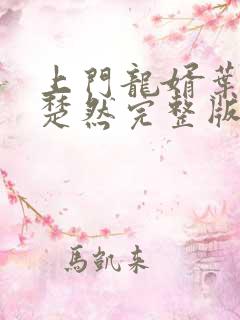 上門龍婿葉
楚然完整版
馬凱來